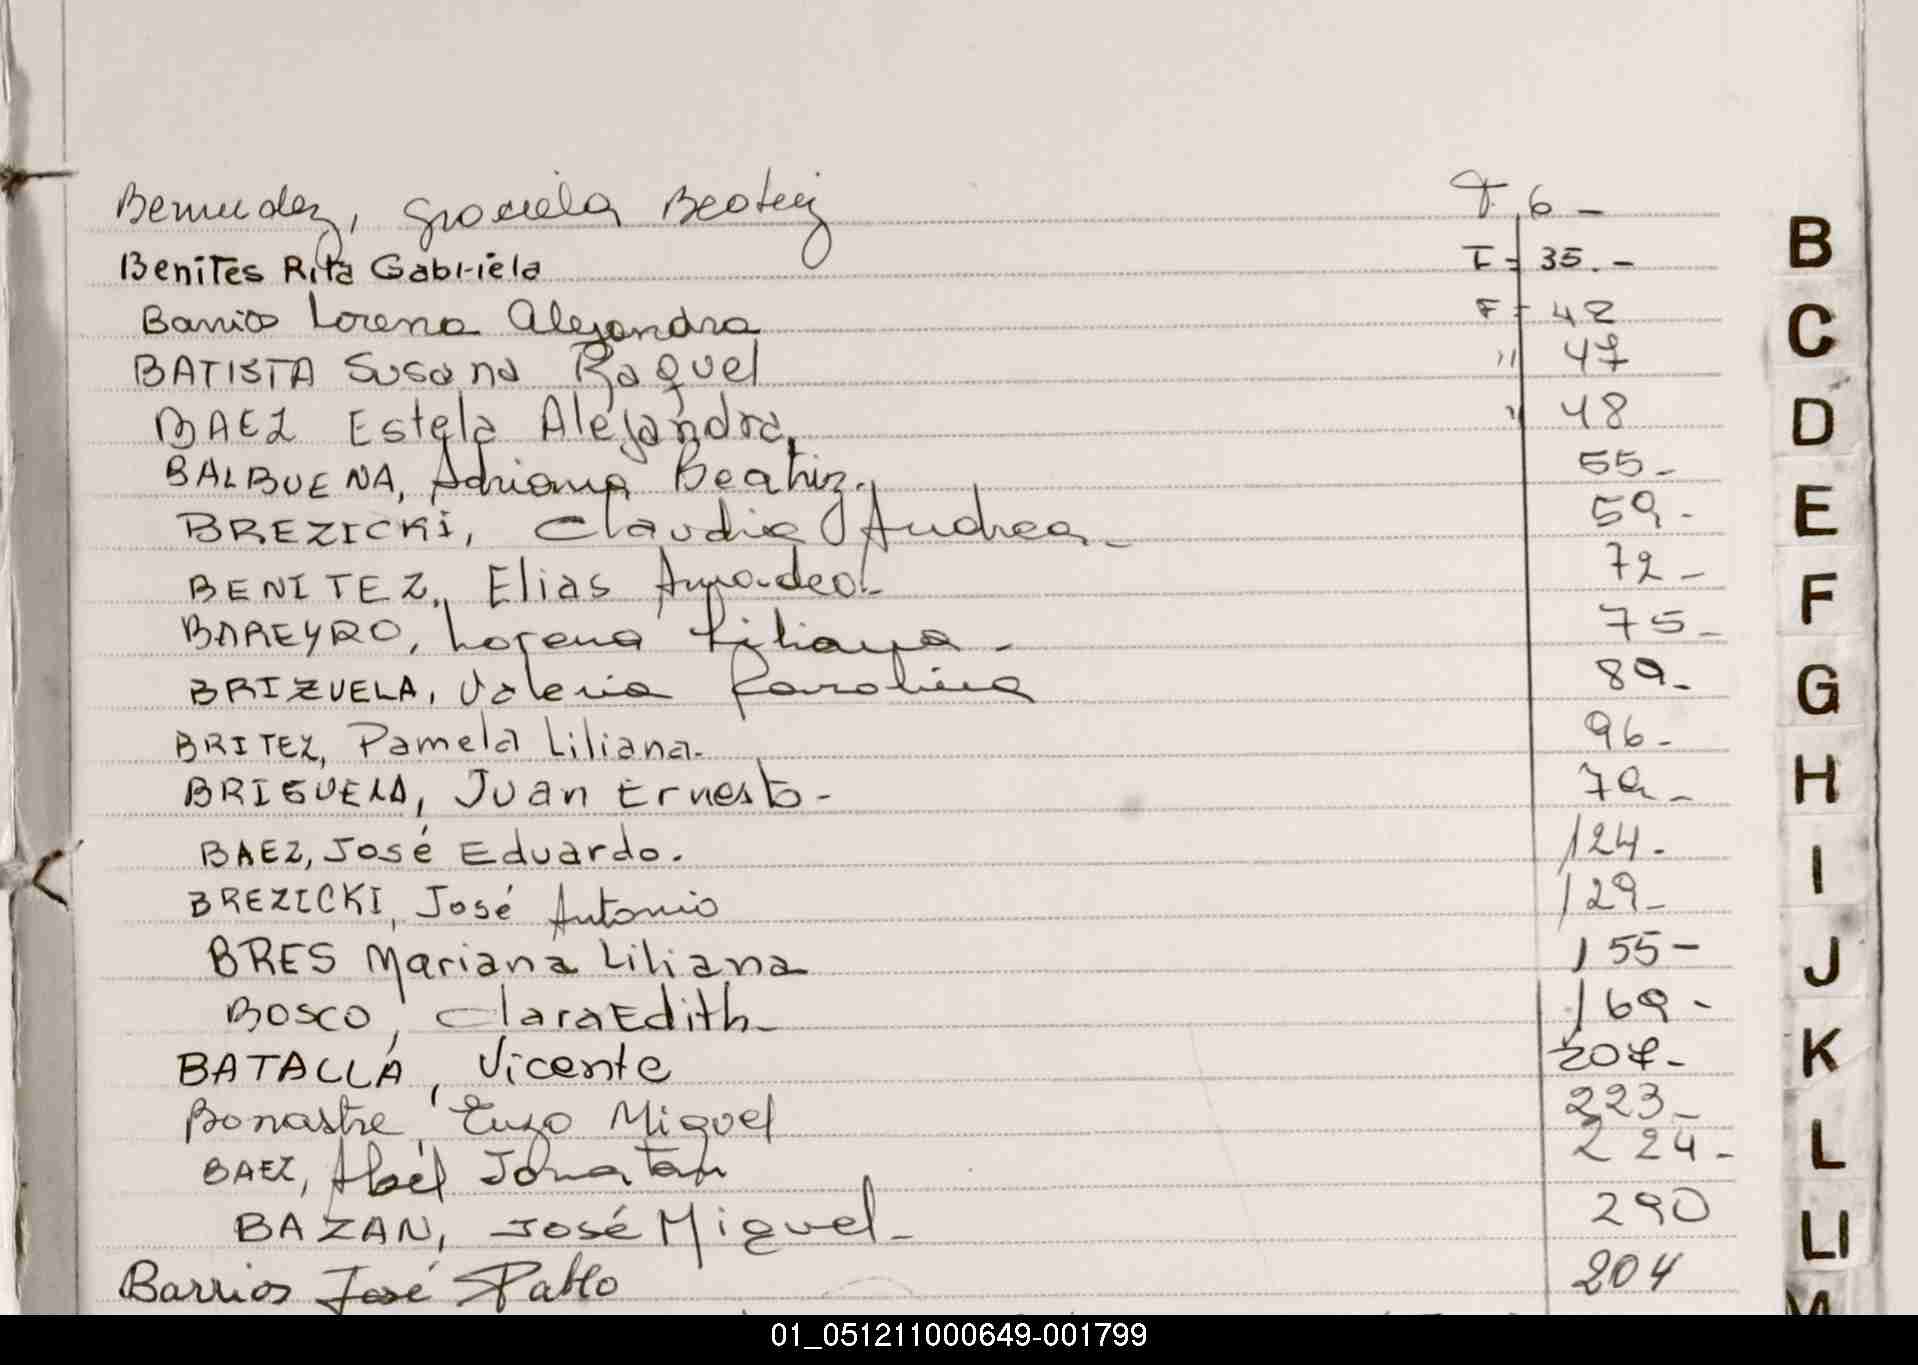 Bermudez, Graciela Beatriz F. 6 -
Benites Rita Gabriela F = 35. -
Barrios Lorena Alejandra F = 42
BATISTA Susana Raquel " 47
BAEZ Estela Alejandra, " 48
BALBUENA, Adriana Beatriz. 55 -
BREZICKI, Claudia Andrea - 59 -
BENITEZ, Elias Amadeo - 72 -
BAREYRO, Lorena Liliana - 75 -
BRIZUELA, Valeria Karolina 89 -
BRITEZ, Pamela Liliana. 96 -
BRIGUELA, Juan Ernesto - 79 -
BAEZ, José Eduardo. 124 -
BREZICKI, José Antonio 129 -
BRES Mariana Liliana 155 -
BOSCO, Clara Edith - 169 -
BATALLA, Vicente 207 -
Bonastre, Enzo Miguel 223 -
BAEZ, Abél Jonatan 224 -
BAZAN, José Miguel - 290
Barrios José Pablo 204
B
C
D
E
F
G
H
I
J
K
L
LI
M
01_051211000649-001799